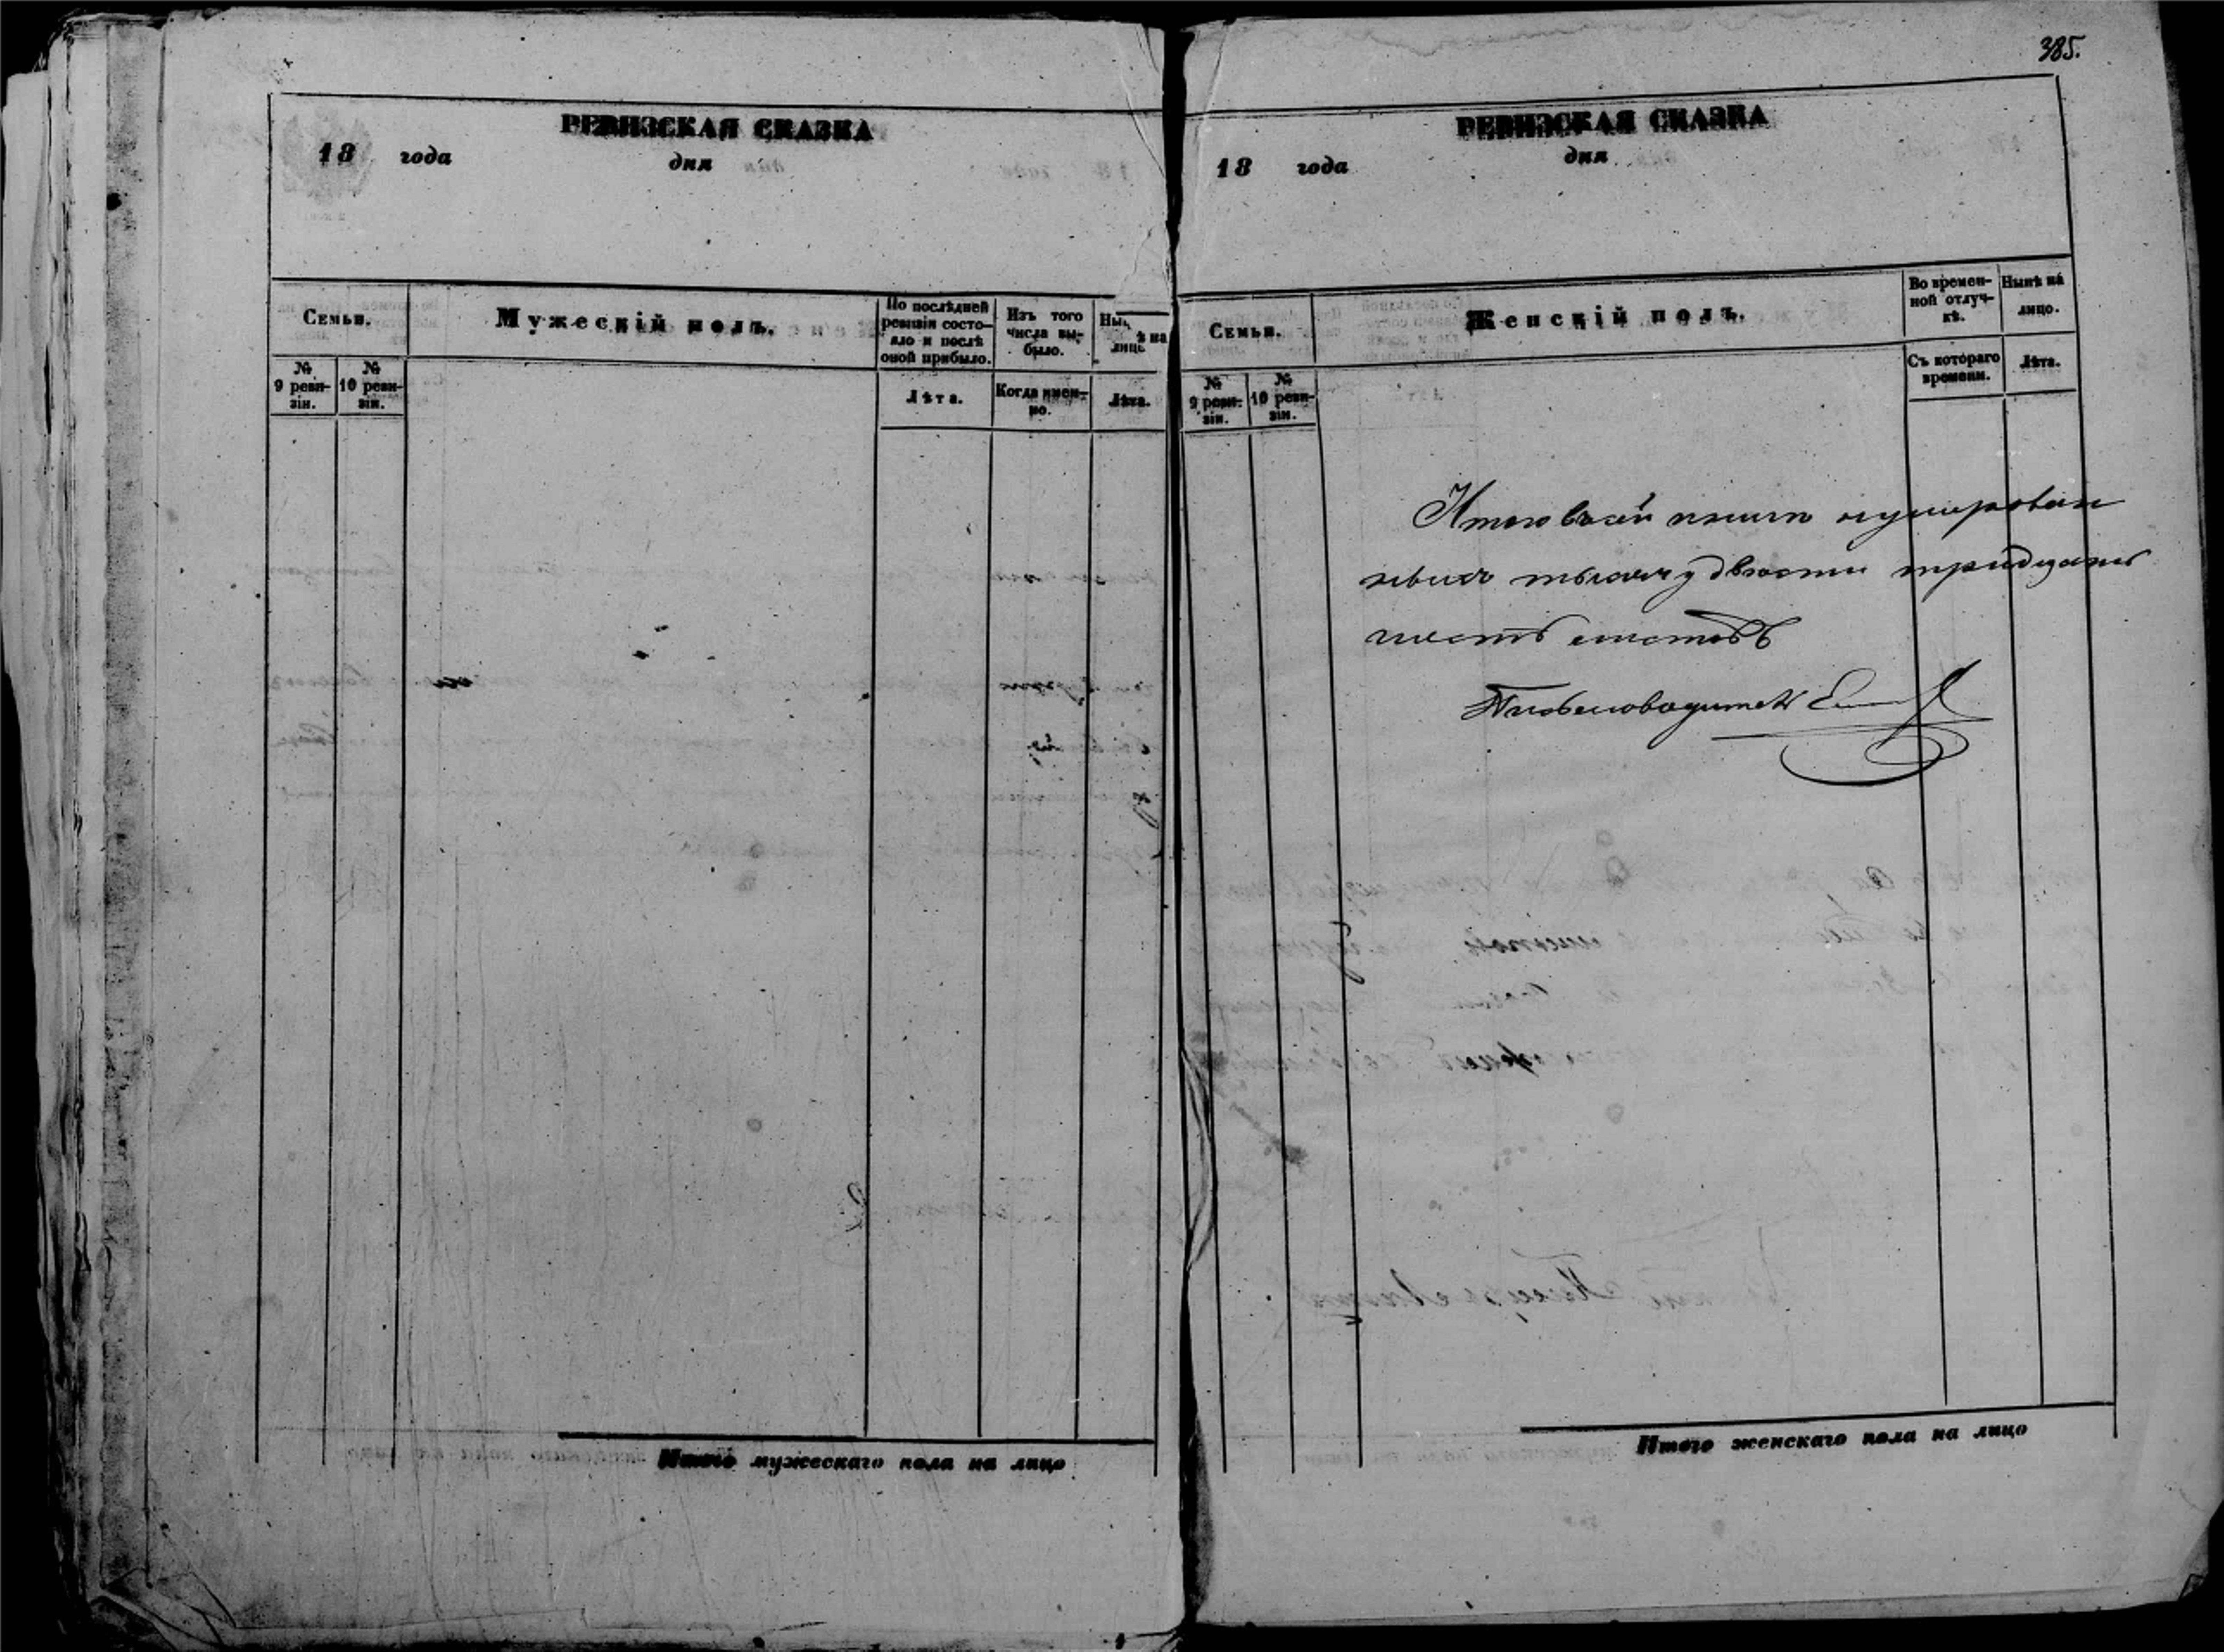 385.
РЕВИЗСКАЯ СКАЗКА
18 года дня
Семьи.
Мужескій полъ.
По послѣдней ревизіи состояло и послѣ оной прибыло.
Изъ того числа выбыло.
Нынѣ на лицо
№ 9 ревизіи.
№ 10 ревизіи.
Лѣта.
Когда именно.
Лѣта.
Итого мужескаго пола на лицо
РЕВИЗСКАЯ СКАЗКА
18 года дня
Семьи.
Женскій полъ.
Во временной отлучкѣ.
Нынѣ на лицо.
№ 9 ревизіи.
№ 10 ревизіи.
Съ котораго времени.
Лѣта.
Итого в сей книги нумерован
ныхъ тысячу двѣсти тридцать
шесть листовъ
Письмоводитель
Итого женскаго пола на лицо